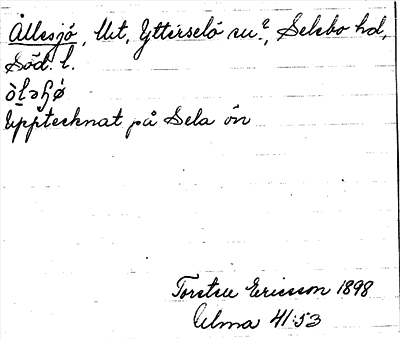 Ållesjö, Ut, Ytterselö sn?, Selebo hd,
Söd. l.
Upptecknat på Sela ön
Torsten Ericson 1898
Ulma 41:53